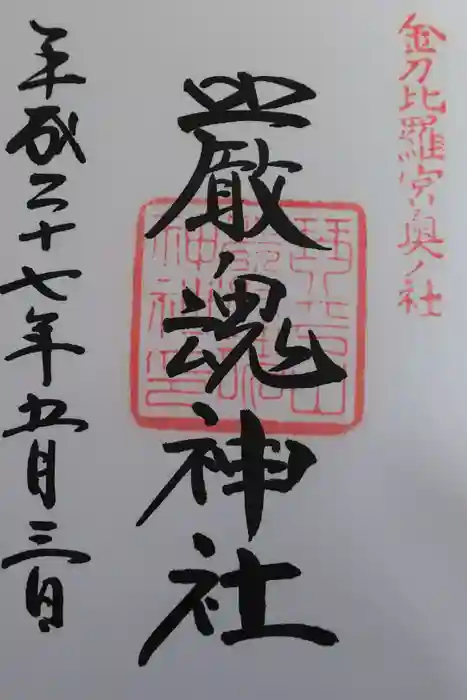 金刀比羅宮奥ノ社
嚴ノ魂神社
平成二十七年五月三日